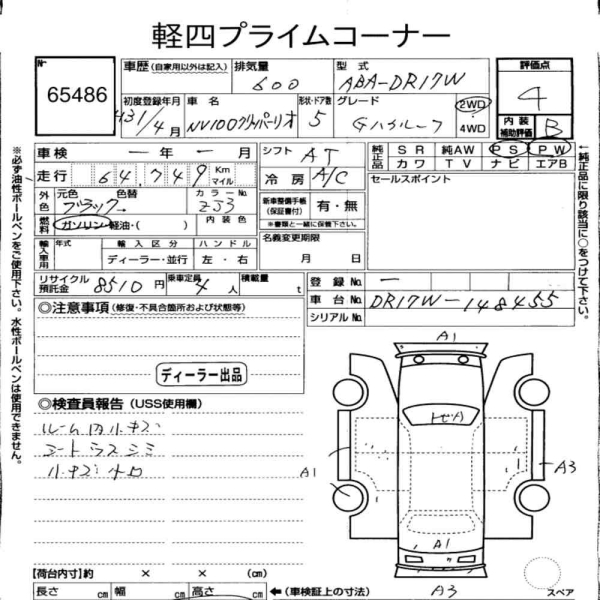 軽四プライムコーナー
№ 65486
車歴(自家用以外は記入) 排気量 600 型式 ABA-DR17W 評価点 4
初度登録年月 H31/4月 車名 NV100クリッパーリオ 形状・ドア数 5 グレード Gハイルーフ 2WD 4WD 内装補助評価 B
車検 ー年ー月 シフト AT 純正品 SR 純AW PS PW
走行 64,749 Km マイル 冷房 A/C カワ TV ナビ エアB
外色 元色 ブラック カラーNo. Z53 新車整備手帳(保証書付) 有・無 セールスポイント
※書類と一緒に保管して下さい。
燃料 ガソリン・軽油・( ) 内装色 名義変更期限
輸入車用 年式 輸入区分 ハンドル 月 日
ディーラー・並行 左・右
リサイクル預託金 8510円 乗車定員 4人 積載量 t 登録No. ー
◎注意事項(修復・不具合箇所および状態等) 車台No. DR17W-148455
シリアルNo.
ディーラー出品
◎検査員報告(USS使用欄)
ルーム内小キズ
シートウスシミ
小キズ
A1
トビA
A1
A3
A1
A3
スペア
【荷台内寸】約 × × (cm)
長さ cm 幅 cm 高さ cm ←(車検証上の寸法)
※必ず油性ボールペンをご使用下さい。水性ボールペンは使用できません。
←純正品に限り該当に○をつけて下さい。